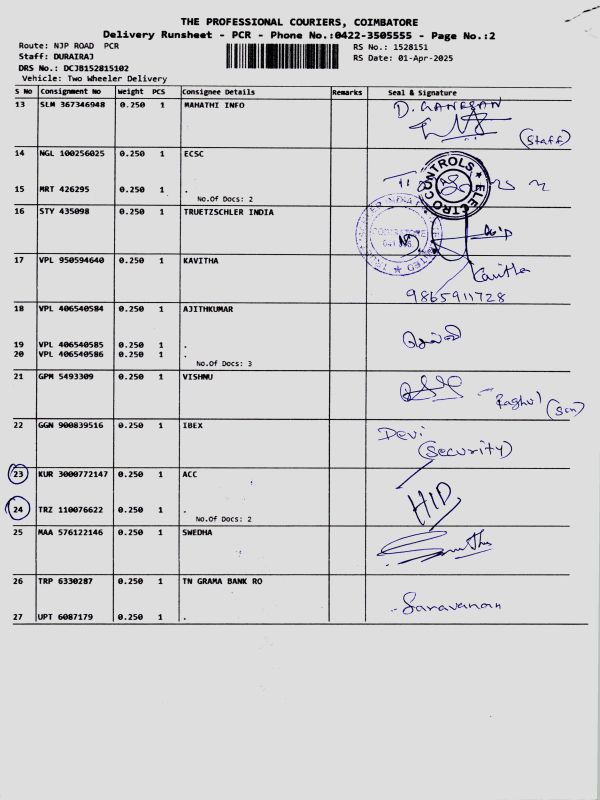 THE PROFESSIONAL COURIERS, COIMBATORE
Delivery Runsheet - PCR - Phone No.:0422-3505555 - Page No.:2
Route: NJP ROAD PCR
RS No.: 1528151
Staff: DURAIRAJ
RS Date: 01-Apr-2025
DRS No.: DCJB152815102
Vehicle: Two Wheeler Delivery
S No Consignment No Weight PCS Consignee Details Remarks Seal & Signature
13 SLM 367346948 0.250 1 MAHATHI INFO D. GANESAN
(Staff)
14 NGL 100256025 0.250 1 ECSC
ELECTRO CONTROLS
15 MRT 426295 0.250 1 .
No.Of Docs: 2
16 STY 435098 0.250 1 TRUETZSCHLER INDIA
COIMBATORE
17 VPL 950594640 0.250 1 KAVITHA Kavitha
9865911728
18 VPL 406540584 0.250 1 AJITHKUMAR
19 VPL 406540585 0.250 1 .
20 VPL 406540586 0.250 1 .
No.Of Docs: 3
21 GPM 5493309 0.250 1 VISHNU Raghul (Son)
22 GGN 900839516 0.250 1 IBEX Devi
(Security)
23 KUR 3000772147 0.250 1 ACC
HID
24 TRZ 110076622 0.250 1 .
No.Of Docs: 2
25 MAA 576122146 0.250 1 SWEDHA
26 TRP 6330287 0.250 1 TN GRAMA BANK RO
Saravanan
27 UPT 6087179 0.250 1 .